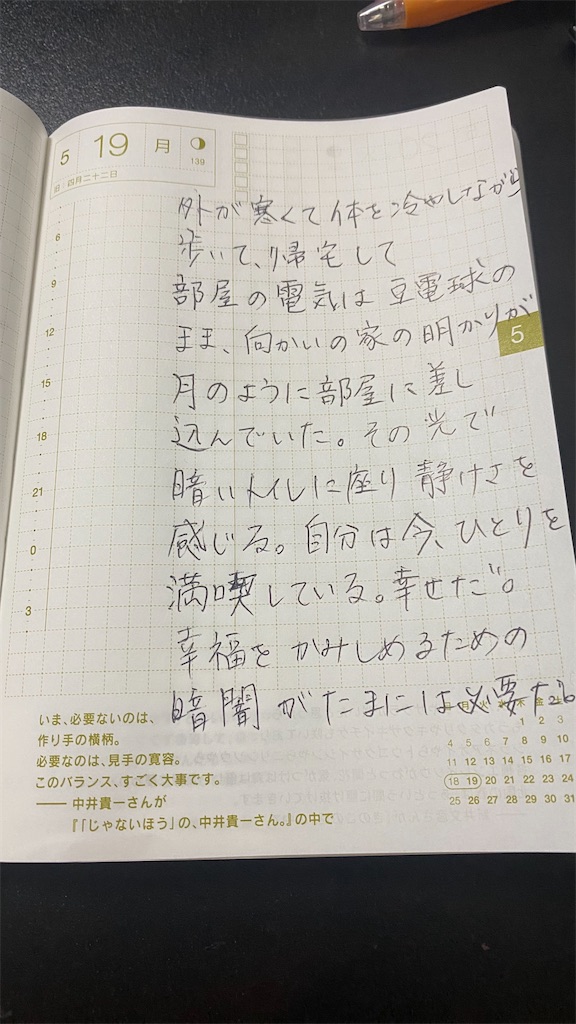 5 19 月
139
旧 四月二十二日
6
9
12
15
18
21
0
3
外が寒くて体を冷やしながら
歩いて、帰宅して
部屋の電気は豆電球の
まま、向かいの家の明かりが
5
月のように部屋に差し
込んでいた。その光で
暗いトイレに座り静けさを
感じる。自分は今、ひとりを
満喫している。幸せだ。
幸福をかみしめるための
暗闇がたまには必要だ。
いま、必要ないのは、
作り手の横柄。
必要なのは、見手の寛容。
このバランス、すごく大事です。
―― 中井貴一さんが
『「じゃないほう」の、中井貴一さん。』の中で
火 木 金
1 2 3
4 5 6 7 8 9 10
11 12 13 14 15 16 17
18 19 20 21 22 23 24
25 26 27 28 29 30 31